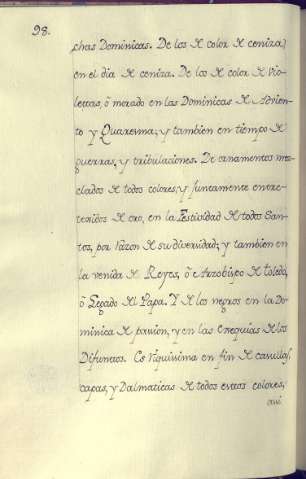 98.
chas Dominicas. De los de color de ceniza,
en el dia de ceniza. De los de color de vio-
lettas, ó morado en las Dominicas de Advien-
to y Quaresma, y tambien en tiempo de
guerras, y tribulaciones. De ornamentos mez-
clados de todos colores, y juntamente entre-
texidos de oro, en la Festividad de todos San-
tos, por razon de su diversidad; y tambien en
la venida de Reyes, ó de Arzobispo de Toledo,
ó Legado del Papa. Y de los negros en la Do-
minica de passion, y en las Exequias de los
Difuntos. Es riquissima en fin de casullas,
capas, y Dalmaticas de todos estos colores,